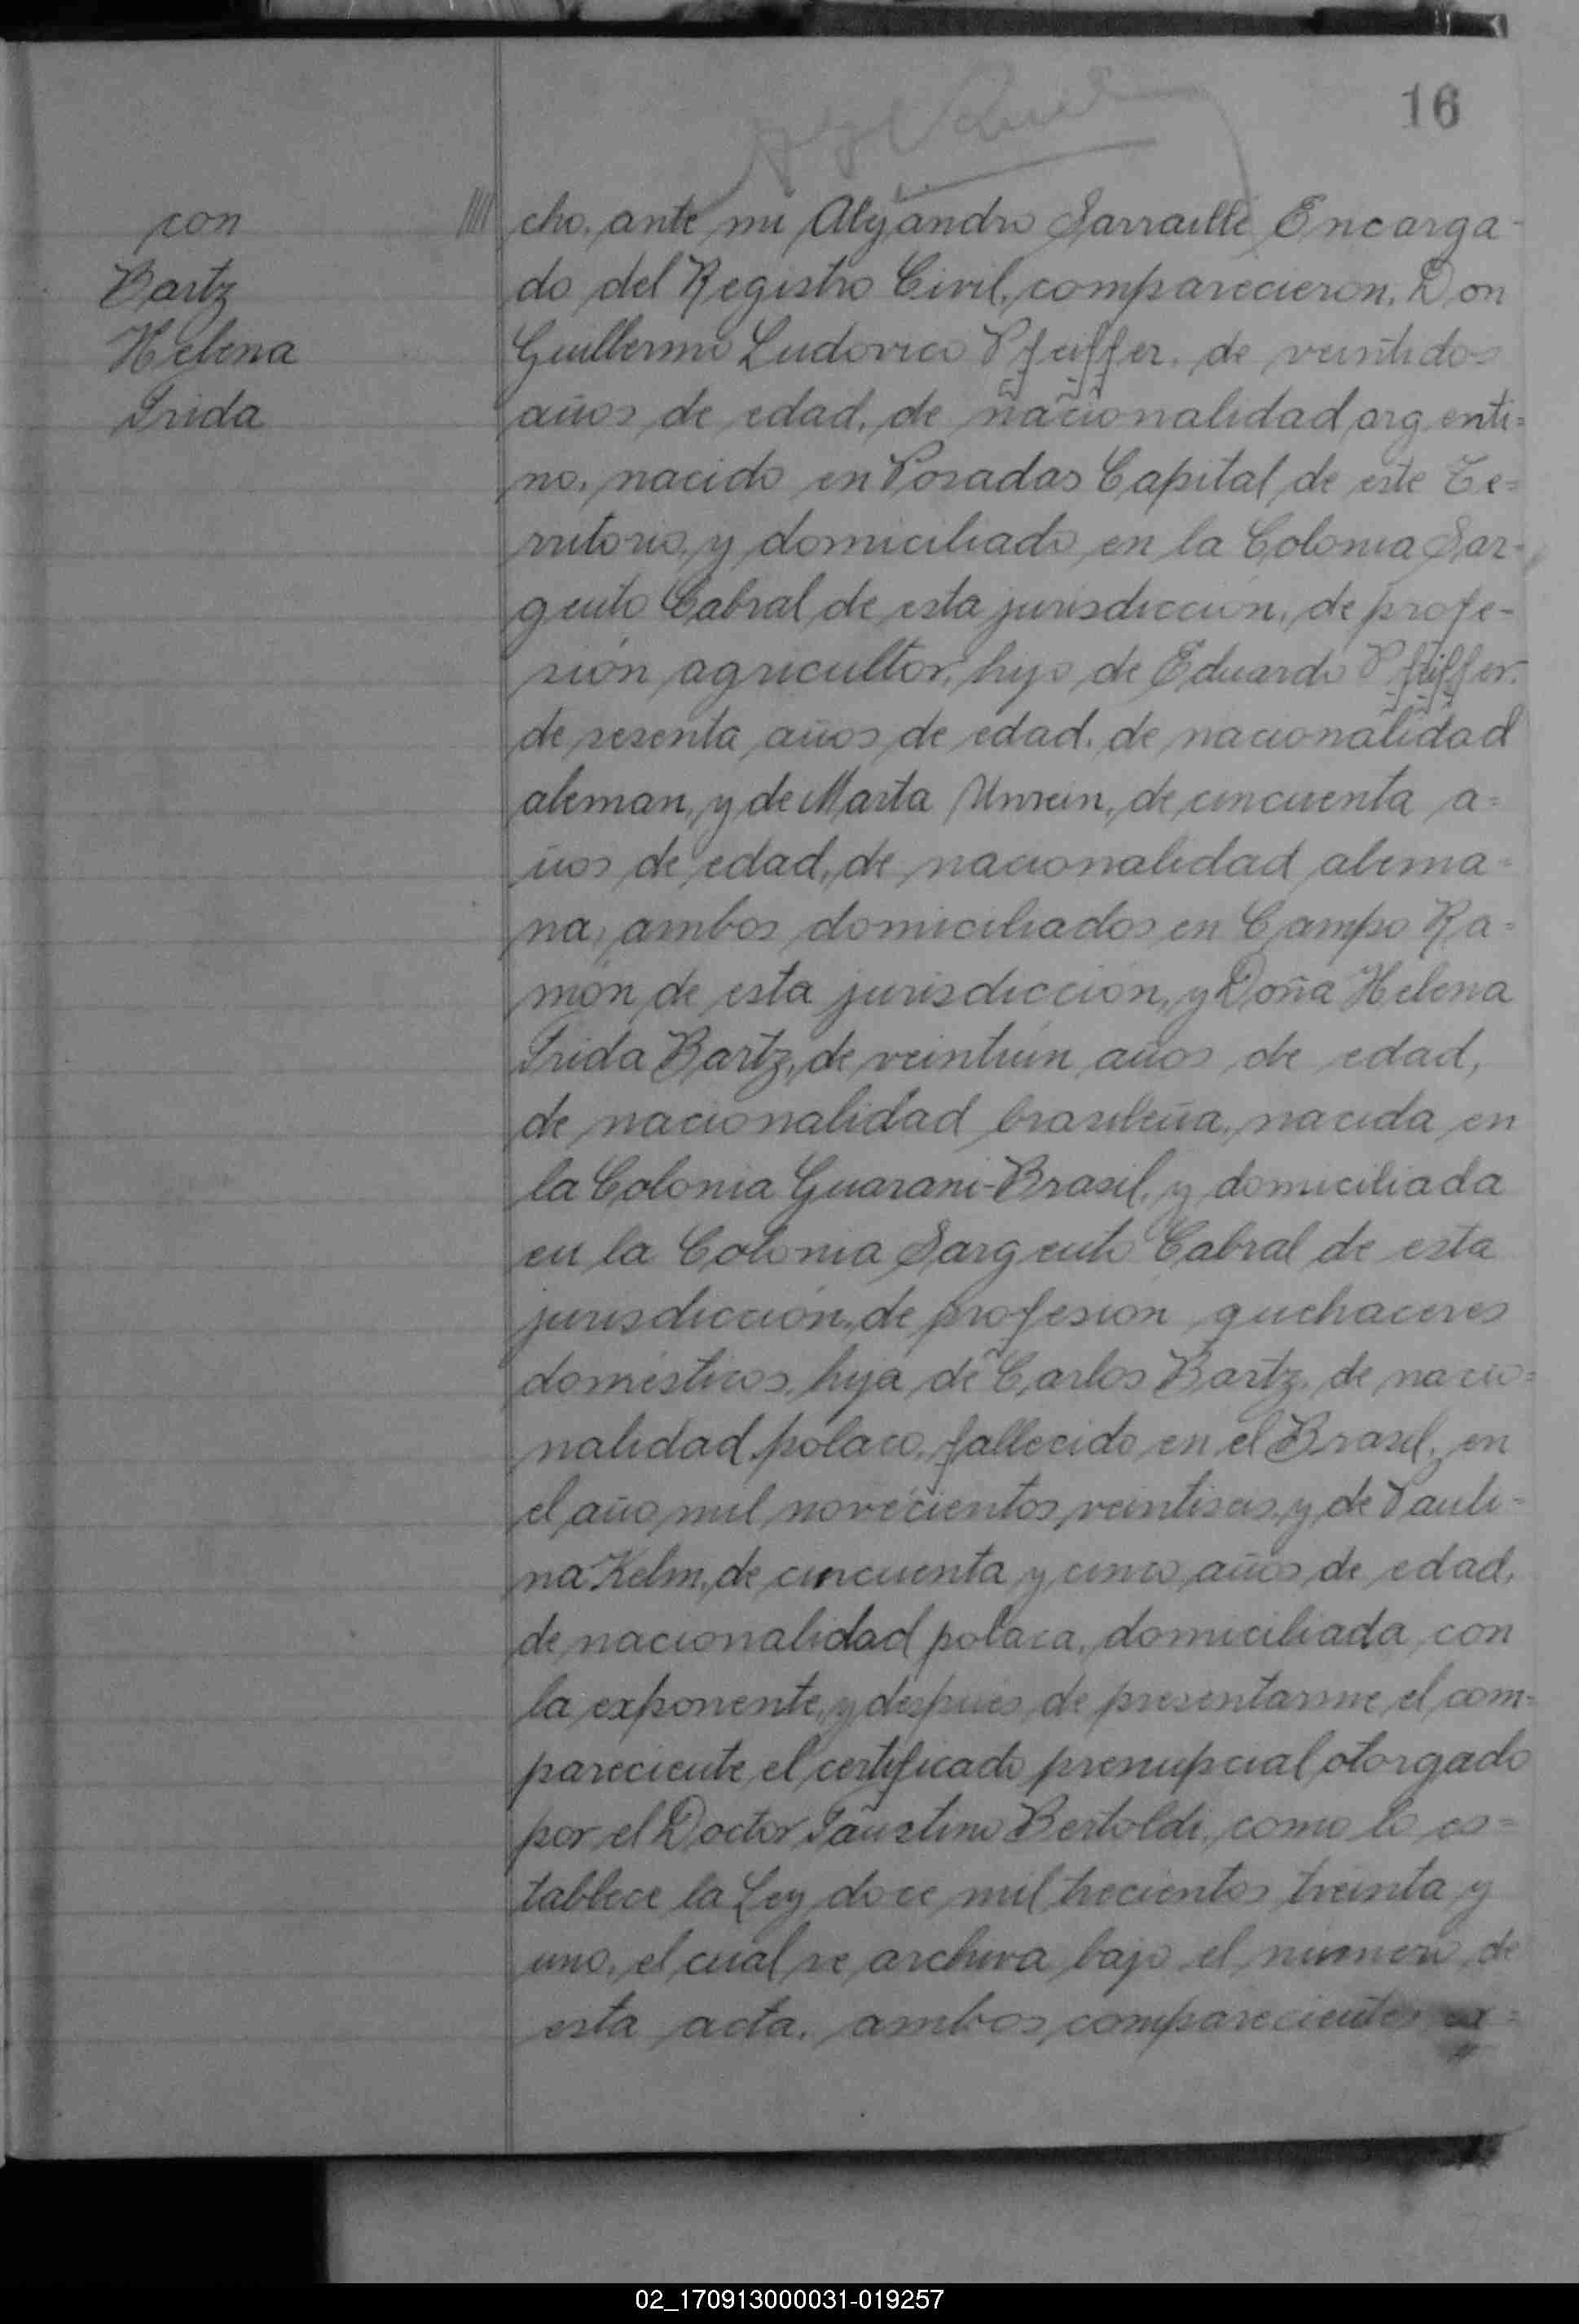 16
con
Bartz
Helena
Frida
cho, ante mi Alejandro Sarraillé Encarga-
do del Registro Civil, comparecieron, Don
Guillermo Ludovico Pfeiffer, de veintidos
años de edad, de nacionalidad argenti=
no, nacido en Posadas Capital de este Te=
rritorio, y domiciliado en la Colonia Sar-
gento Cabral de esta jurisdicción, de profe-
sión agricultor, hijo de Eduardo Pfeiffer,
de sesenta años de edad, de nacionalidad
aleman, y de Marta Unrein, de cincuenta a=
ños de edad, de nacionalidad alema-
na, ambos domiciliados en Campo Ra-
món de esta jurisdicción, y Doña Helena
Frida Bartz, de veintiún años de edad,
de nacionalidad brasileña, nacida en
la Colonia Guarani-Brasil, y domiciliada
en la Colonia Sargento Cabral de esta
jurisdicción, de profesion quehaceres
domésticos, hija de Carlos Bartz, de nacio=
nalidad polaco, fallecido en el Brasil, en
el año mil novecientos veintiseis, y de Pauli-
na Kelm, de cincuenta y cinco años de edad,
de nacionalidad polaca, domiciliada con
la exponente, y despues de presentarme el com=
pareciente el certificado prenupcial otorgado
por el Doctor Faustino Bertoldi, como lo es=
tablece la Ley doce mil trecientos treinta y
uno, el cual se archiva bajo el número de
esta acta, ambos comparecientes ex=
02_170913000031-019257